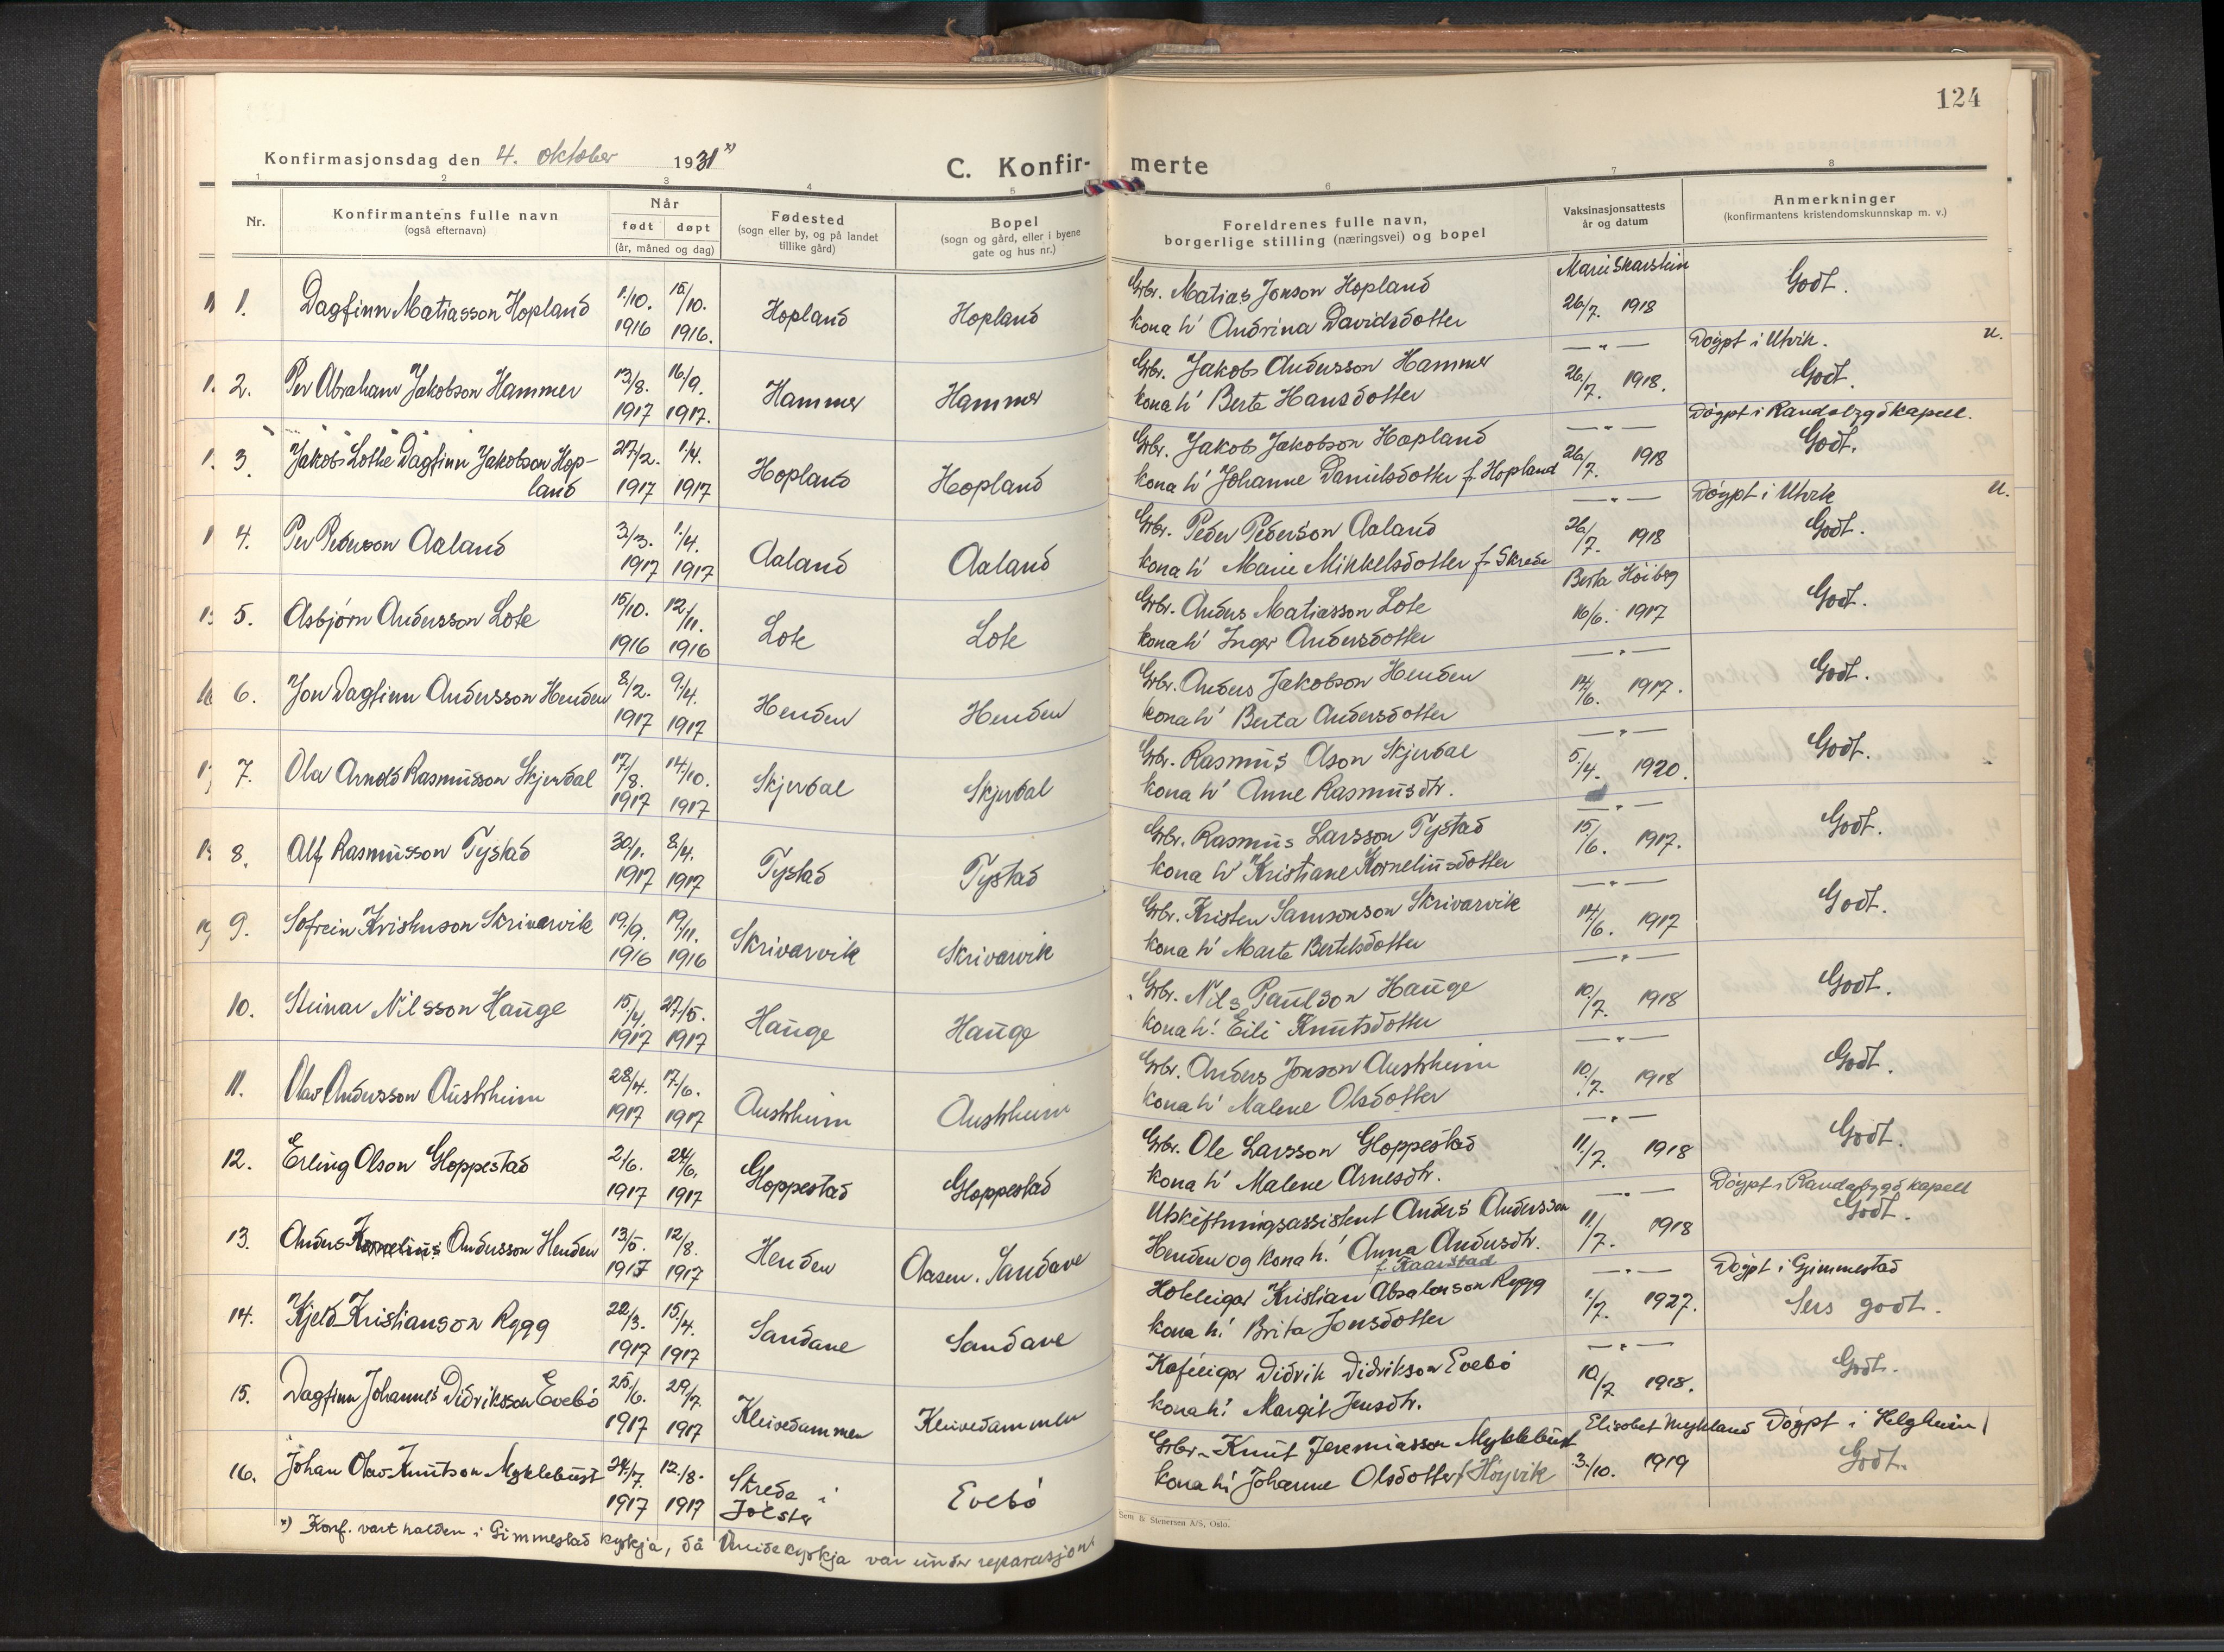 124
Konfirmasjonsdag den 4. oktober 1931 *)
C. Konfir- merte
1 2 3 4 5 6 7 8
Nr.
Konfirmantens fulle navn
(også efternavn)
Når
født døpt
(år, måned og dag)
Fødested
(sogn eller by, og på landet
tillike gård)
Bopel
(sogn og gård, eller i byene
gate og hus nr.)
Foreldrenes fulle navn,
borgerlige stilling (næringsvei) og bopel
Vaksinasjonsattests
år og datum
Anmerkninger
(konfirmantens kristendomskunnskap m. v.)
1. Dagfinn Matiasson Hopland 1/10. 1916 15/10. 1916. Hopland Hopland
Grbr. Matias Jonson Hopland
kona h' Andrina Davidsdotter
Marie Skarstein
26/7. 1918
Godt.
2. Per Abraham Jakobson Hammer 13/8. 1917 16/9. 1917. Hammer Hammer
Grbr. Jakob Andersson Hammer
kona h' Berte Hansdotter
— " —
26/7. 1918.
Döypt i Utvik. U.
Godt.
3. Jakob Lothe Dagfinn Jakobson Hop-
land 27/2. 1917 1/4. 1917 Hopland Hopland
Grbr. Jakob Jakobson Hopland
kona h' Johanne Danielsdotter f. Hopland
— " —
26/7. 1918
Döypt i Randabygd kapell.
Godt.
4. Per Pederson Aaland 3/3. 1917 1/4. 1917 Aaland Aaland
Grbr. Peder Pederson Aaland
kona h' Marie Mikkelsdotter f. Skrede
— " —
26/7. 1918
Döypt i Utvik U.
Godt.
5. Asbjørn Andersson Lote 15/10. 1916 12/11. 1916 Lote Lote
Grbr. Anders Matiasson Lote
kona h' Inger Andersdotter
Berta Höiberg
16/6. 1917
Godt.
6. Jon Dagfinn Andersson Henden 8/2. 1917 9/4. 1917 Henden Henden
Grbr. Anders Jakobson Henden
kona h' Berta Andersdotter
— " —
14/6. 1917.
Godt.
7. Ola Arnold Rasmusson Skjerdal 17/8. 1917 14/10. 1917 Skjerdal Skjerdal
Grbr. Rasmus Ason Skjerdal
kona h' Anne Rasmusdtr.
— " —
5/4. 1920.
Godt.
8. Alf Rasmusson Tystad 30/1. 1917 8/4. 1917 Tystad Tystad
Grbr. Rasmus Larsson Tystad
kona h' Kristiane Korneliusdotter
— " —
15/6. 1917.
Godt.
9. Sofrein Kristenson Skrivarvik 19/9. 1916 19/11. 1916 Skrivarvik Skrivarvik
Grbr. Kristen Samsonson Skrivarvik
kona h' Marte Bertelsdotter
— " —
14/6. 1917
Godt.
10. Steinar Nilsson Hauge 15/4. 1917 27/5. 1917 Hauge Hauge
Grbr. Nils Paulson Hauge
kona h! Eili Knutsdotter
— " —
10/7. 1918
Godt.
11. Olav Andersson Austrheim 28/4. 1917 17/6. 1917 Austrheim Austrheim
Grbr. Anders Jonson Austrheim
kona h' Malene Olsdotter
— " —
10/7. 1918
Godt.
12. Erling Olson Gloppestad 2/6. 1917 24/6. 1917 Gloppestad Gloppestad
Grbr. Ole Larsson Gloppestad
kona h' Malene Arnesdtr.
— " —
11/7. 1918
Godt.
13. Anders Kornelius Andersson Henden 13/5. 1917 12/8. 1917 Henden Aasen. Sandane
Utskiftningsassistent Anders Andersson
Henden og kona h.! Anna Andersdtr.
f. Kaarstad
— " —
11/7. 1918
Döypt i Randabygd kapell
Godt.
14. Kjeld Kristianson Rygg 22/3. 1917 15/4. 1917 Sandane Sandane
Hotelleigar Kristian Absalonson Rygg
kona h! Brita Jonsdotter
— " —
1/7. 1927.
Döypt i Gjimmestad
Sers godt.
15. Dagfinn Johannes Didrikson Evebö 25/6. 1917 29/7. 1917 Kleivedammen Kleivedammen
Kafeeigar Didrik Didrikson Evebö
kona h! Margit Jensdtr.
— " —
10/7 1918.
Godt.
16. Johan Olav Knutson Myklebust 24/7. 1917 12/8. 1917 Skreda i
Jölster Evebö
Grbr. Knut Jeremiasson Myklebust
kona h! Johanne Olsdotter f Höyvik
Elisabet Mykland
3/10. 1919
Döypt i Helgheim
Godt.
*) Konf. vart halden i Gimmestad kyrkja, då Vereide kyrkja var under reparasjon.
Sem & Stenersen A/S, Oslo.